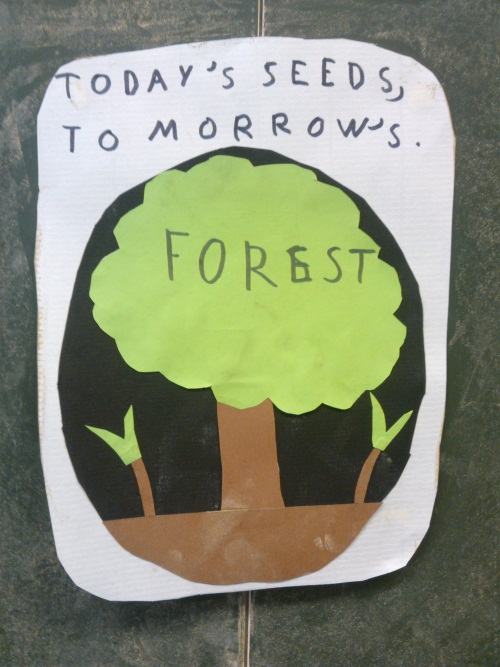 TODAY'S SEEDS,
TO MORROW'S.
FOREST